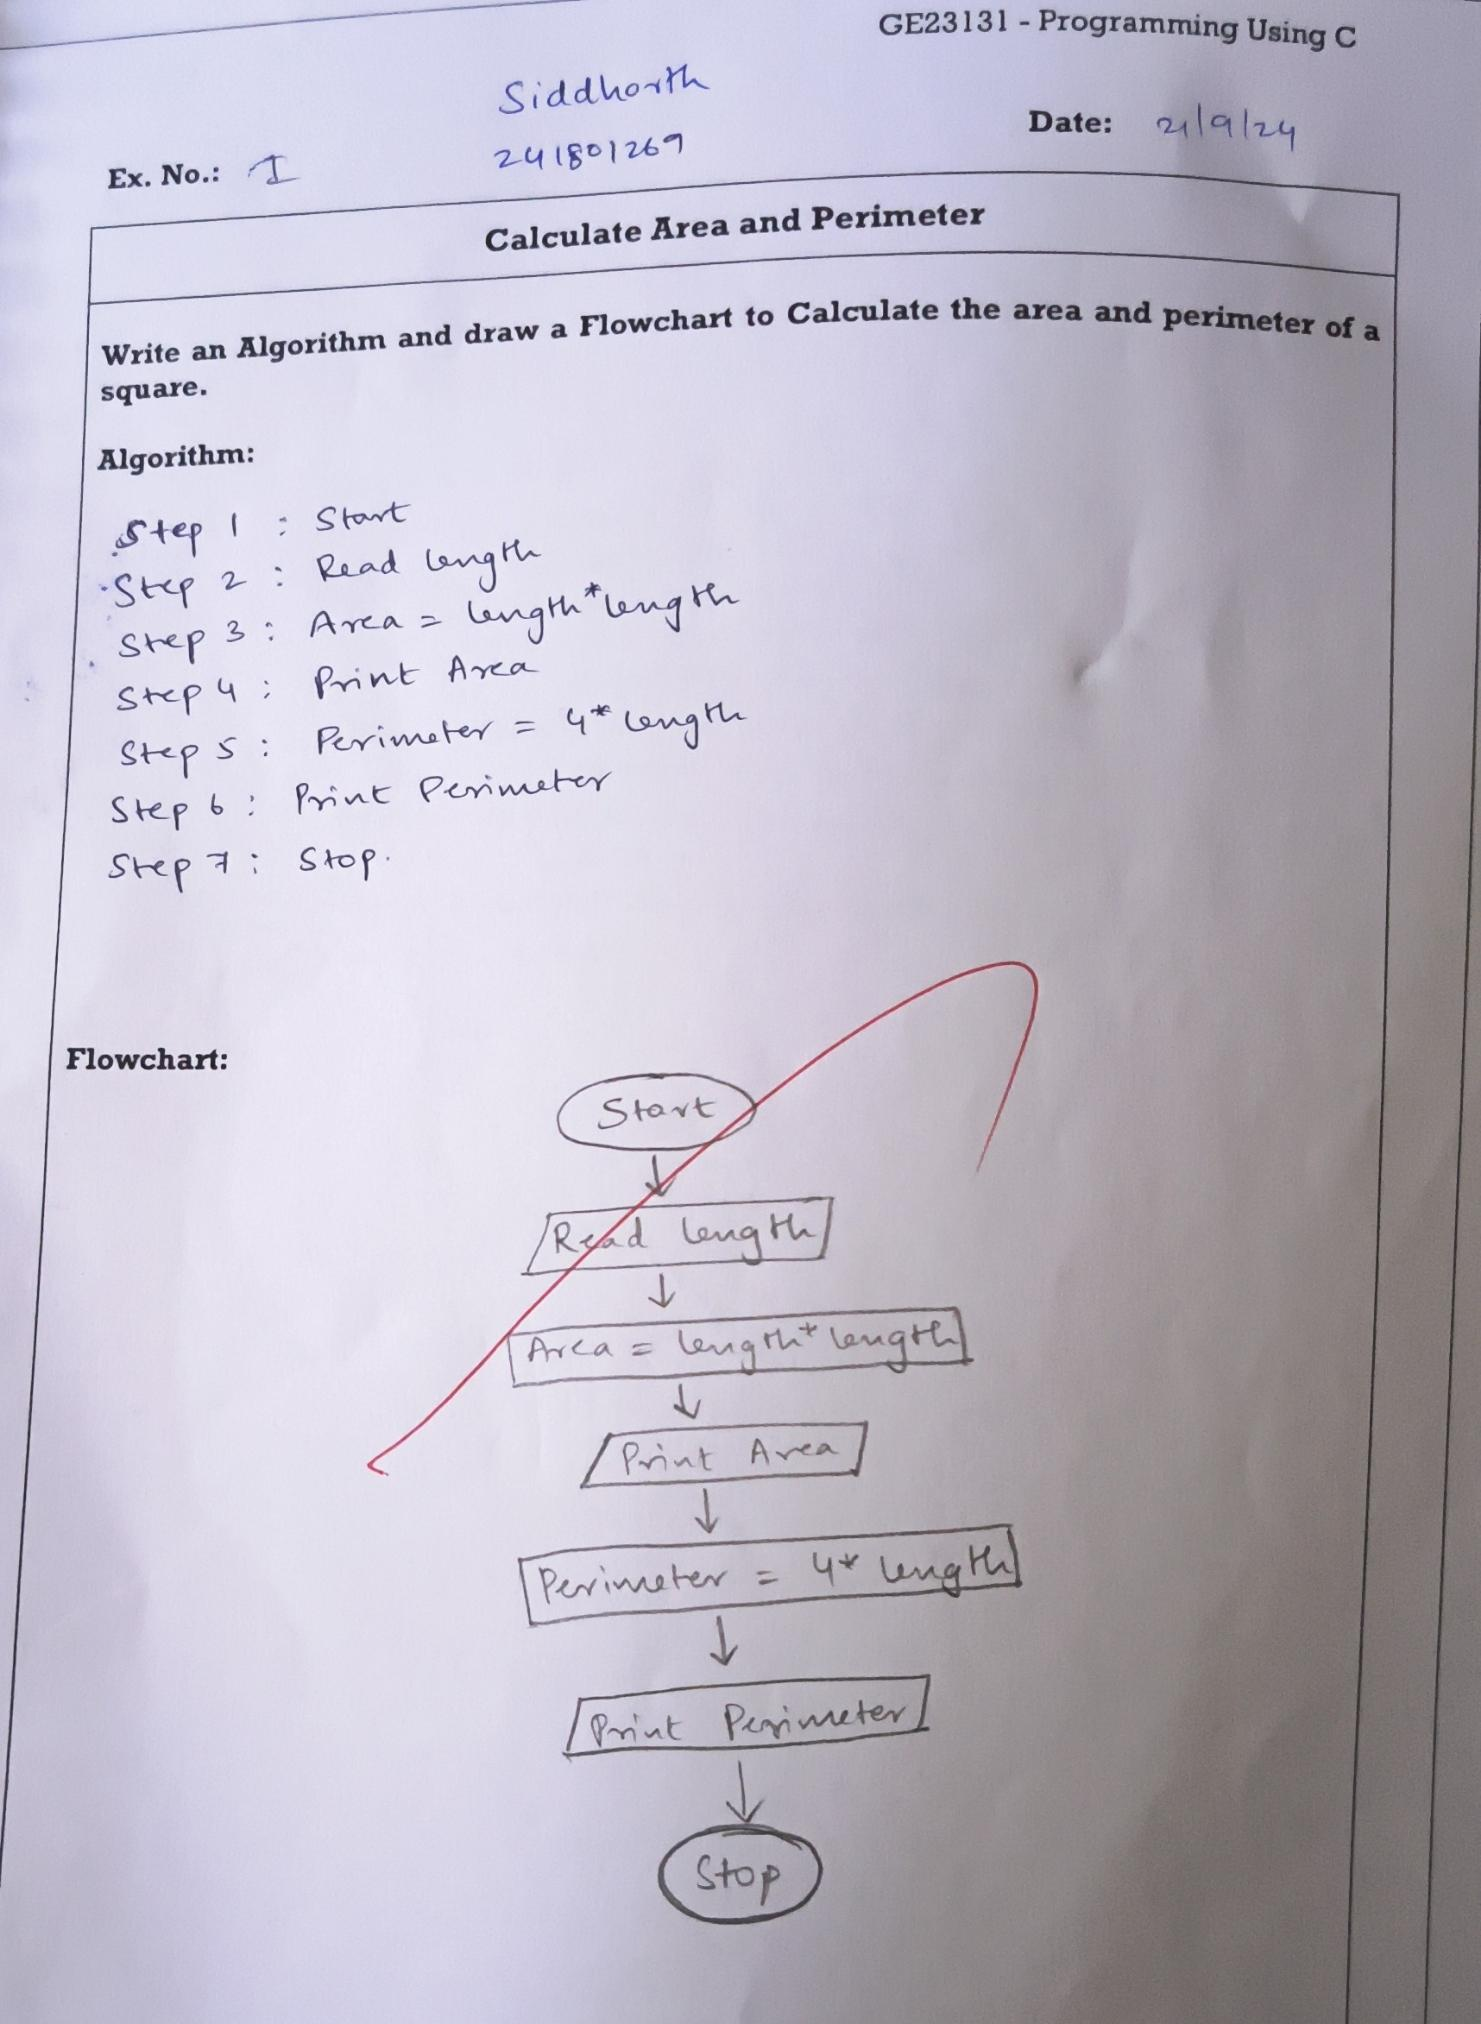 GE23131 - Programming Using C
Siddharth
241801269
Ex. No.: I
Date: 21/9/24
Calculate Area and Perimeter
Write an Algorithm and draw a Flowchart to Calculate the area and perimeter of a
square.
Algorithm:
Step 1 : Start
Step 2 : Read length
Step 3 : Area = length*length
Step 4 : Print Area
Step 5 : Perimeter = 4* length
Step 6 : Print Perimeter
Step 7 : Stop.
Flowchart:
Start
Read length
Area = length*length
Print Area
Perimeter = 4* length
Print Perimeter
Stop